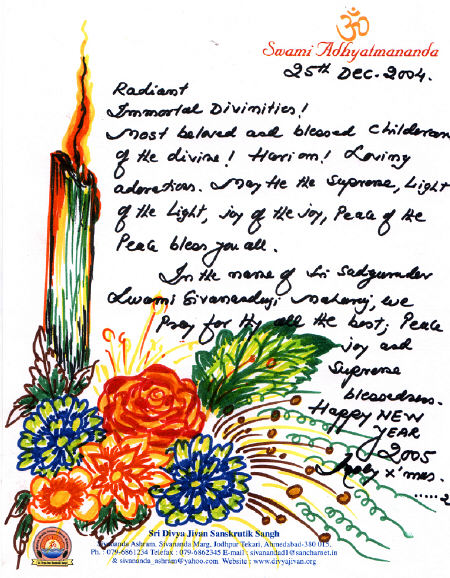 ॐ
Swami Adhyatmananda
25th Dec. 2004.
Radiant
Immortal Divinities!
Most beloved and blessed Childeren
of the divine! Hari om! Loving
adorations. May He the Supreme, Light
of the Light, joy of the joy, Peace of the
Peace bless you all.
In the name of Sri Sadgurudev
Swami Sivanandaji Maharaj, we
Pray for thy all the best; Peace
joy and
Supreme
blessedness.
Happy NEW
YEAR
2005
x'mas.
.....2
Sri Divya Jivan Sanskrutik Sangh
Sivananda Ashram, Sivananda Marg, Jodhpur Tekari, Ahmedabad-380 015.
Ph. : 079-6861234 Telefax : 079-6862345 E-mail : sivanandad1@sancharnet.in
& sivananda_ashram@yahoo.com Website : www.divyajivan.org